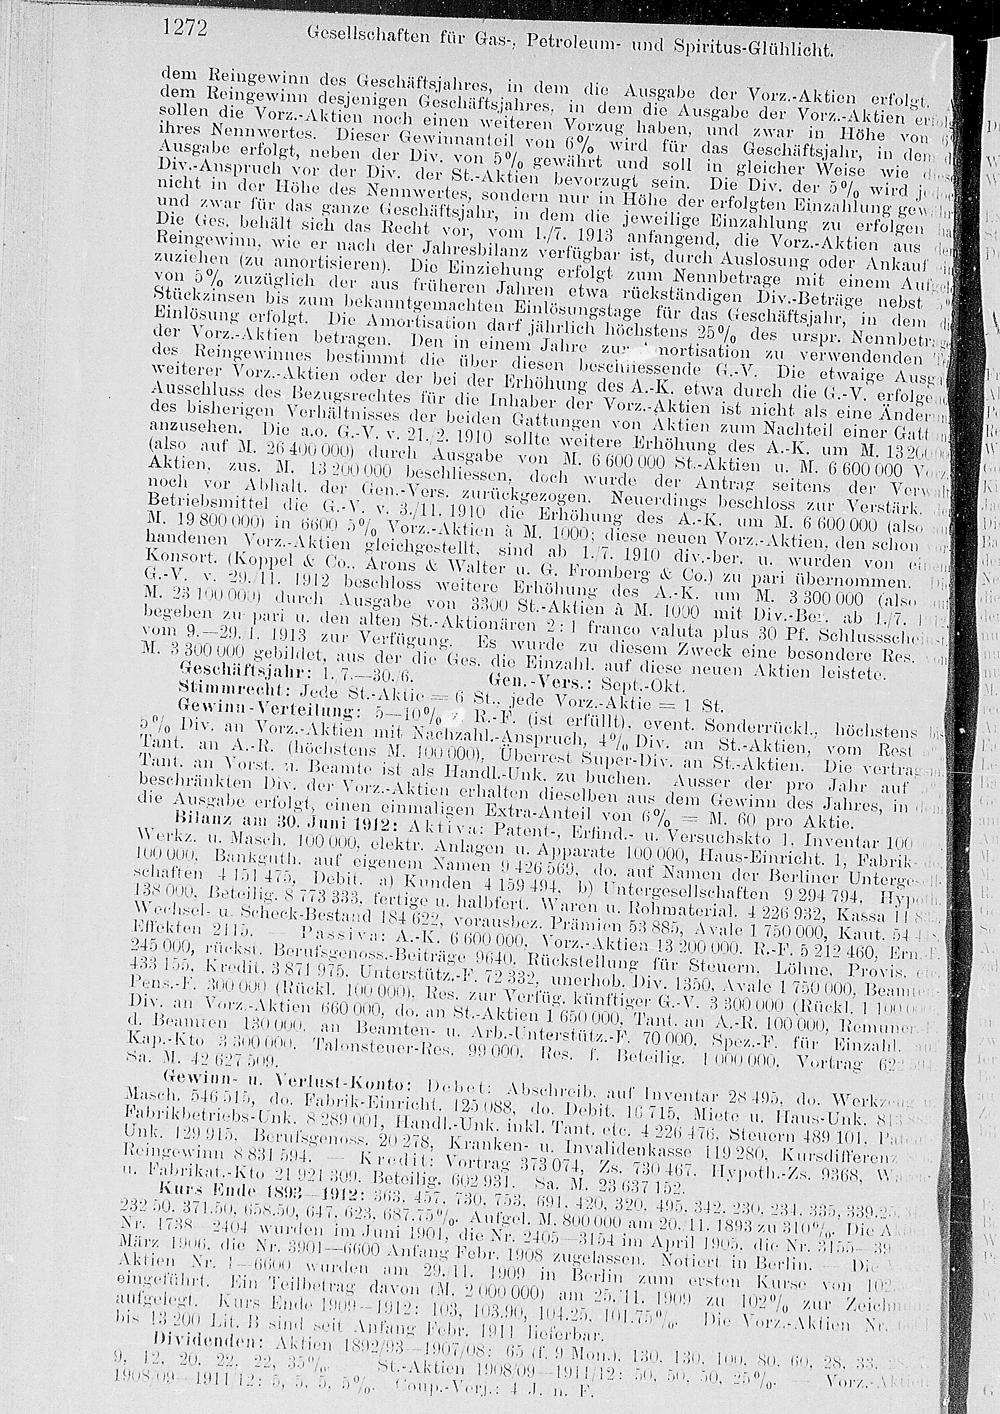 1272 Gesellschaften für Gas-, Petroleum- und Spiritus-Glühlicht.
dem Reingewinn des Geschäftsjahres, in dem die Ausgabe der Vorz.-Aktien erfolgt.
dem Reingewinn desjenigen Geschäftsjahres, in dem die Ausgabe der Vorz.-Aktien
sollen die Vorz.-Aktien noch einen weiteren Vorzug haben, und zwar in Höhe von
ihres Nennwertes. Dieser Gewinnanteil von 6% wird für das Geschäftsjahr, in dem
Ausgabe erfolgt, neben der Div. von 5% gewährt und soll in gleicher Weise wie
Div.-Anspruch vor der Div. der St.-Aktien bevorzugt sein. Die Div. der 5% wird
nicht in der Höhe des Nennwertes, sondern nur in Höhe der erfolgten Einzahlung
und zwar für das ganze Geschäftsjahr, in dem die jeweilige Einzahlung zu erfolgen
Die Ges. behält sich das Recht vor, vom 1./7. 1913 anfangend, die Vorz.-Aktien aus
Reingewinn, wie er nach der Jahresbilanz verfügbar ist, durch Auslosung oder Ankauf
zuziehen (zu amortisieren). Die Einziehung erfolgt zum Nennbetrage mit einem
von 5% zuzüglich der aus früheren Jahren etwa rückständigen Div.-Beträge nebst
Stückzinsen bis zum bekanntgemachten Einlösungstage für das Geschäftsjahr, in dem
Einlösung erfolgt. Die Amortisation darf jährlich höchstens 25% des urspr.
der Vorz.-Aktien betragen. Den in einem Jahre zur mortisation zu verwendenden
des Reingewinnes bestimmt die über diesen beschliessende G.-V. Die etwaige
weiterer Vorz.-Aktien oder der bei der Erhöhung des A.-K. etwa durch die G.-V.
Ausschluss des Bezugsrechtes für die Inhaber der Vorz.-Aktien ist nicht als eine
des bisherigen Verhältnisses der beiden Gattungen von Aktien zum Nachteil einer
anzusehen. Die a.o. G.-V. v. 21./2. 1910 sollte weitere Erhöhung des A.-K. um M.
(also auf M. 26 400 000) durch Ausgabe von M. 6 600 000 St.-Aktien u. M. 6 600 000
Aktien, zus. M. 13 200 000 beschliessen, doch wurde der Antrag seitens der
noch vor Abhalt. der Gen.-Vers. zurückgezogen. Neuerdings beschloss zur Verstärk.
Betriebsmittel die G.-V. v. 3./11. 1910 die Erhöhung des A.-K. um M. 6 600 000 (also
M. 19 800 000) in 6600 5% Vorz.-Aktien à M. 1000; diese neuen Vorz.-Aktien, den schon
handenen Vorz.-Aktien gleichgestellt, sind ab 1./7. 1910 div.-ber. u. wurden von
Konsort. (Koppel & Co., Arons & Walter u. G. Fromberg & Co.) zu pari übernommen.
G.-V. v. 29./11. 1912 beschloss weitere Erhöhung des A.-K. um M. 3 300 000 (also
M. 23 100 000) durch Ausgabe von 3300 St.-Aktien à M. 1000 mit Div.-Ber. ab 1./7.
begeben zu pari u. den alten St.-Aktionären 2:1 franco valuta plus 30 Pf.
vom 9.—29./1. 1913 zur Verfügung. Es wurde zu diesem Zweck eine besondere Res.
M. 3 300 000 gebildet, aus der die Ges. die Einzahl. auf diese neuen Aktien leistete.
Geschäftsjahr: 1./7.—30./6. Gen.-Vers.: Sept.-Okt.
Stimmrecht: Jede St.-Aktie = 6 St., jede Vorz.-Aktie = 1 St.
Gewinn-Verteilung: 5—10% z. R.-F. (ist erfüllt), event. Sonderrückl., höchstens
5% Div. an Vorz.-Aktien mit Nachzahl.-Anspruch, 4% Div. an St.-Aktien, vom Rest
Tant. an A.-R. (höchstens M. 100 000), Überrest Super-Div. an St.-Aktien. Die
Tant. an Vorst. u. Beamte ist als Handl.-Unk. zu buchen. Ausser der pro Jahr auf
beschränkten Div. der Vorz.-Aktien erhalten dieselben aus dem Gewinn des Jahres, in
die Ausgabe erfolgt, einen einmaligen Extra-Anteil von 6% = M. 60 pro Aktie.
Bilanz am 30. Juni 1912: Aktiva: Patent-, Erfind.- u. Versuchskto 1, Inventar 100
Werkz. u. Masch. 100 000, elektr. Anlagen u. Apparate 100 000, Haus-Einricht. 1, Fabrik-
100 000, Bankguth. auf eigenem Namen 9 426 569, do. auf Namen der Berliner
schaften 4 151 475, Debit. a) Kunden 4 159 494, b) Untergesellschaften 9 294 794,
138 000, Beteilig. 8 773 333, fertige u. halbfert. Waren u. Rohmaterial. 4 226 932, Kassa
Wechsel- u. Scheck-Bestand 184 622, vorausbez. Prämien 53 885, Avale 1 750 000, Kaut.
Effekten 2115. — Passiva: A.-K. 6 600 000, Vorz.-Aktien 13 200 000, R.-F. 5 212 460,
245 000, rückst. Berufsgenoss.-Beiträge 9640, Rückstellung für Steuern, Löhne, Provis.
433 155, Kredit. 3 871 975, Unterstütz.-F. 72 332, unerhob. Div. 1350, Avale 1 750 000,
Pens.-F. 300 000 (Rückl. 100 000), Res. zur Verfüg. künftiger G.-V. 3 300 000
Div. an Vorz.-Aktien 660 000, do. an St.-Aktien 1 650 000, Tant. an A.-R. 100 000,
d. Beamten 130 000, an Beamten- u. Arb.-Unterstütz.-F. 70 000, Spez.-F. für Einzahl.
Kap.-Kto 3 300 000, Talonsteuer-Res. 99 000, Res. f. Beteilig. 1 000 000, Vortrag
Sa. M. 42 627 509.
Gewinn- u. Verlust-Konto: Debet: Abschreib. auf Inventar 28 495, do.
Masch. 546 515, do. Fabrik-Einricht. 125 088, do. Debit. 16 715, Miete u. Haus-Unk.
Fabrikbetriebs-Unk. 8 289 001, Handl.-Unk. inkl. Tant. etc. 4 226 476, Steuern 489 101,
Unk. 129 915, Berufsgenoss. 20 278, Kranken- u. Invalidenkasse 119 280,
Reingewinn 8 831 594. — Kredit: Vortrag 373 074, Zs. 730 467, Hypoth.-Zs. 9368,
u. Fabrikat.-Kto 21 921 309, Beteilig. 602 931. Sa. M. 23 637 152.
Kurs Ende 1893—1912: 363, 457, 730, 753, 691, 420, 320, 495, 342, 230, 234, 335,
232.50, 371.50, 658.50, 647, 623, 687.75%. Aufgel. M. 800 000 am 20./11. 1893 zu 310%. Die
Nr. 1738—2404 wurden im Juni 1901, die Nr. 2405—3154 im April 1905, die Nr. 3155—
März 1906, die Nr. 3901—6600 Anfang Febr. 1908 zugelassen. Notiert in Berlin. —
Aktien Nr. 1—6600 wurden am 29./11. 1909 in Berlin zum ersten Kurse von
eingeführt. Ein Teilbetrag davon (M. 2 000 000) am 25./11. 1909 zu 102% zur
aufgelegt. Kurs Ende 1909—1912: 103, 103.90, 104.25, 101.75%. Die Vorz.-Aktien Nr.
bis 13 200 Lit. B sind seit Anfang Febr. 1911 lieferbar.
Dividenden: Aktien 1892/93—1907/08: 65 (f. 9 Mon.), 130, 130, 100, 80, 60, 28, 33,
9, 12, 20, 22, 22, 35%. St.-Aktien 1908/09—1911/12: 50, 50, 50, 25%. —
1908/09—1911/12: 5, 5, 5, 5%. Coup.-Verj.: 4 J. n. F.